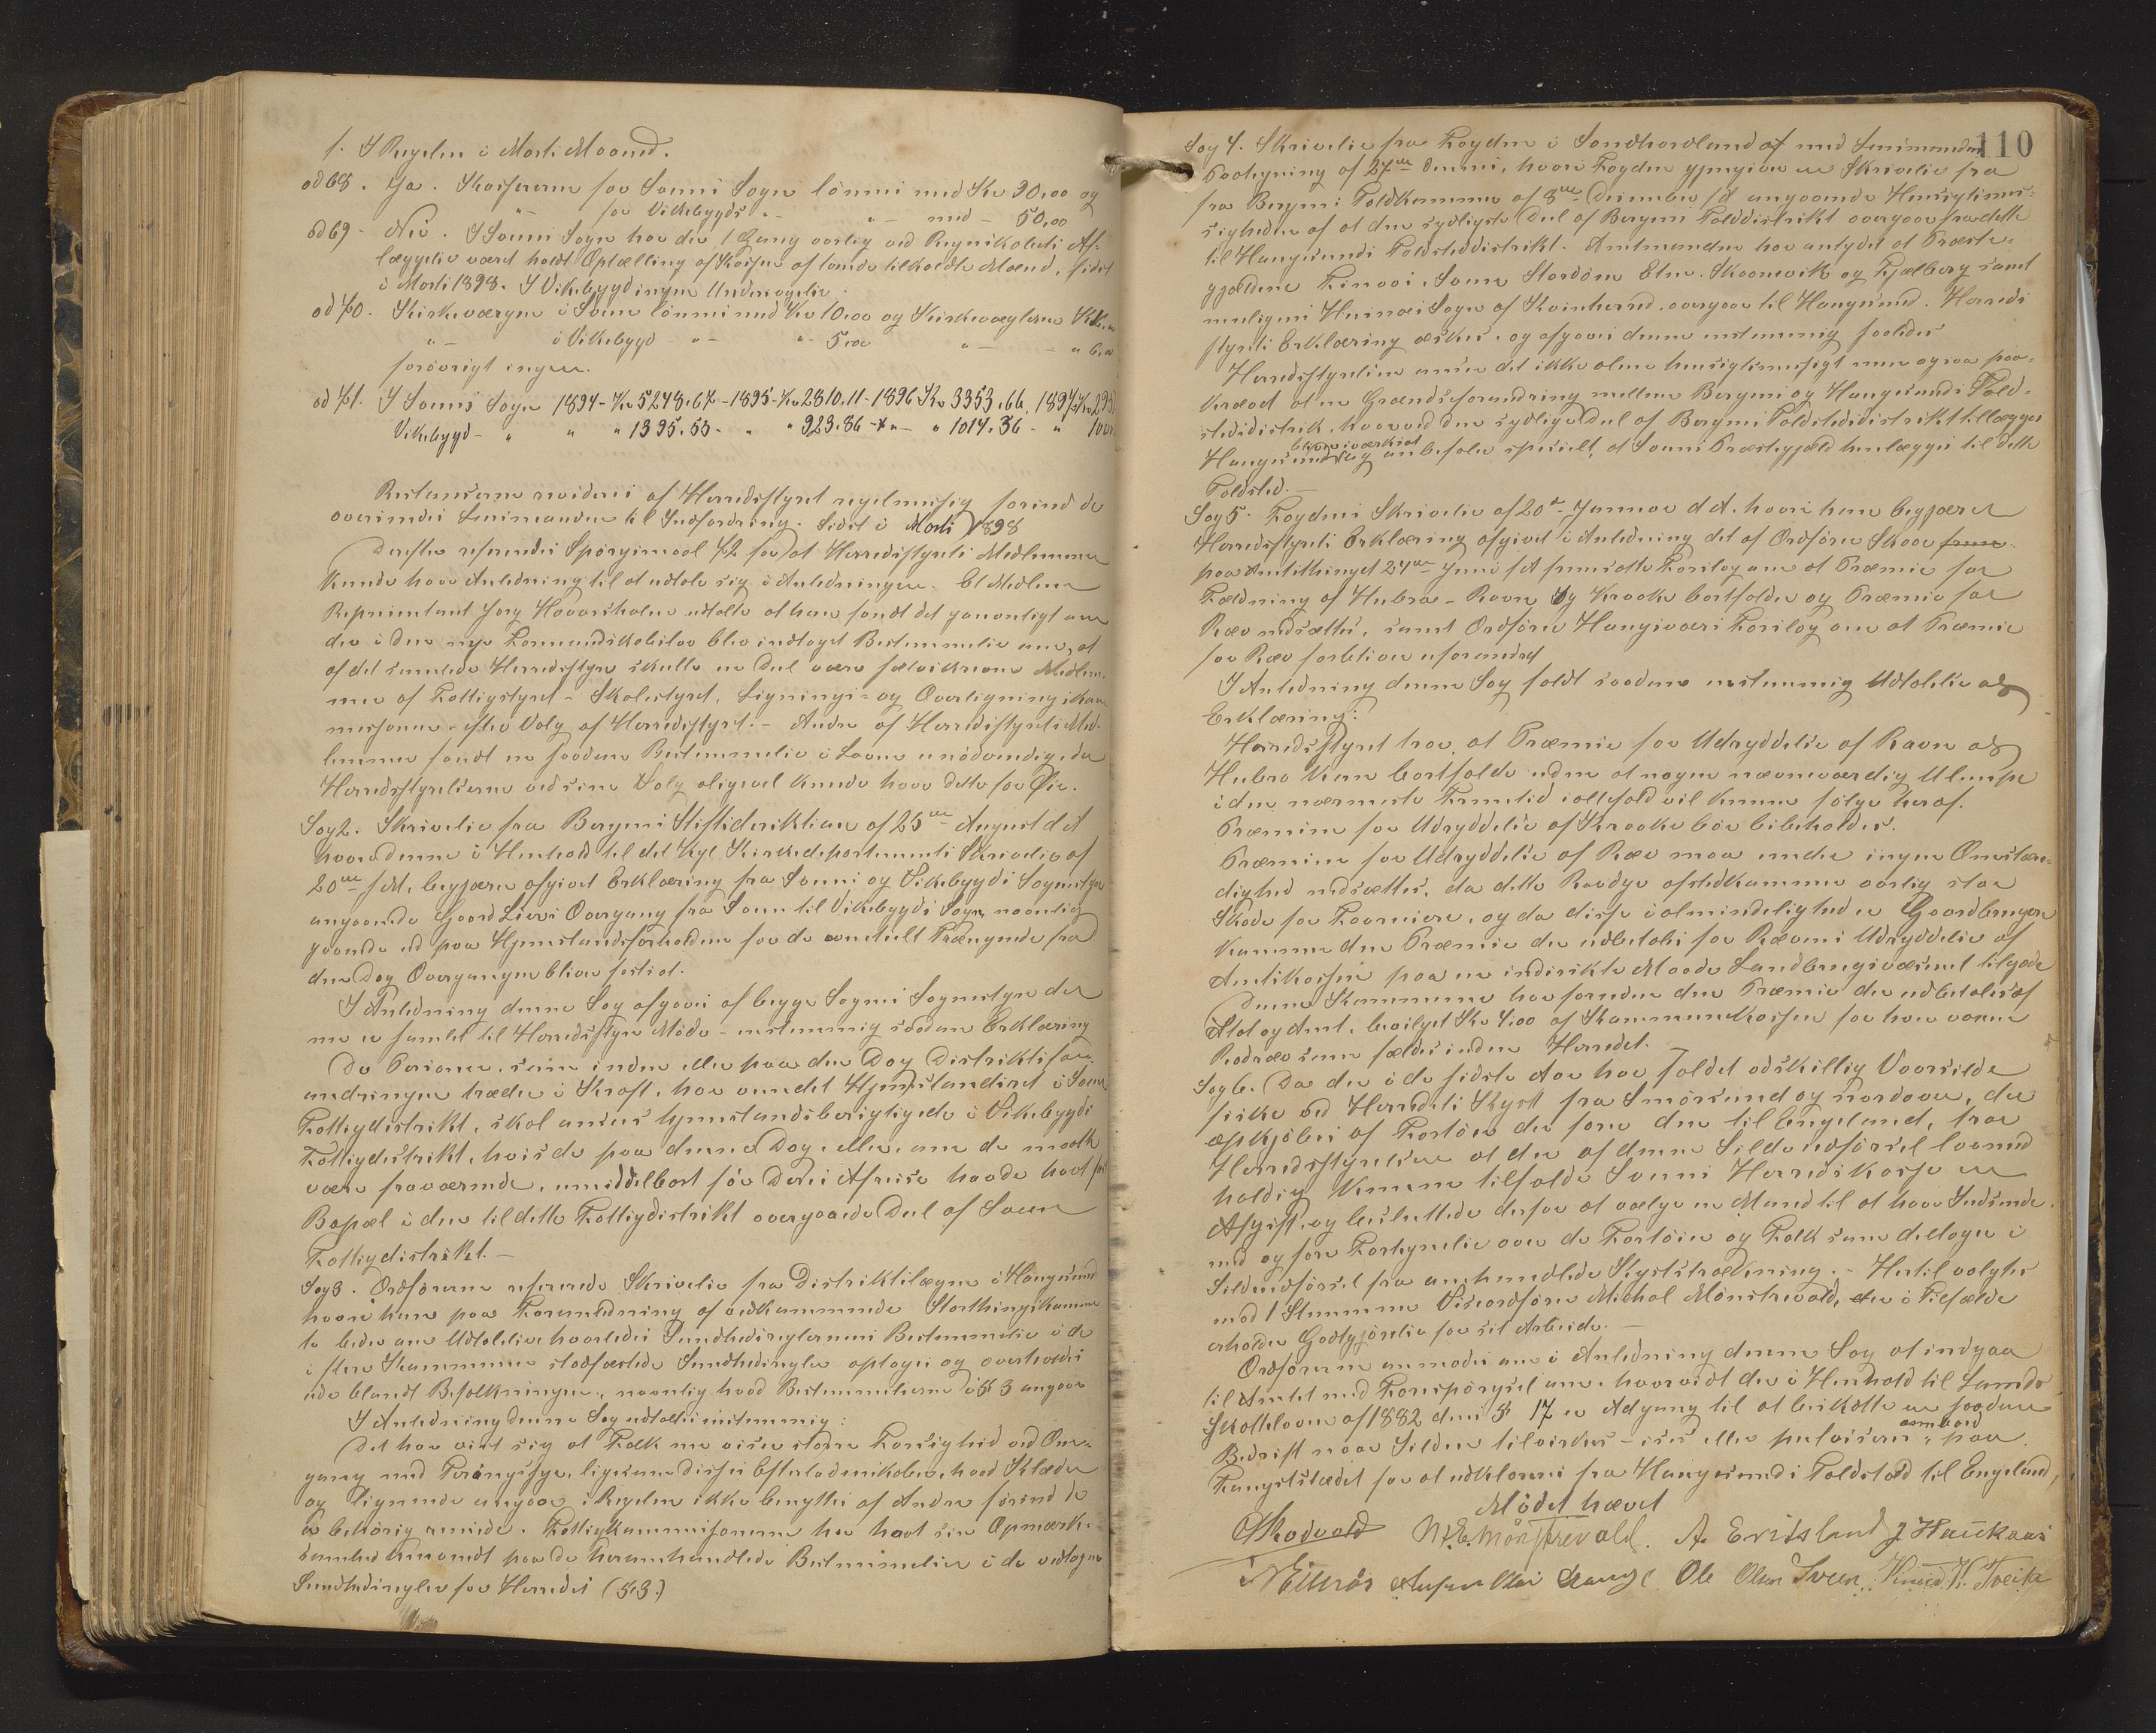 1. I Regelen i Marts Maaned.
ad 68. Ja. Kasserern for Sveens Sogn lönnes med Kr 90,00 og
" for Vikebygds " " med - 50,00
ad 69 - Nei. I Sveens Sogn har der 1 Gang aarlig ved Regnskabets Af-
læggelse været holdt Optælling af Kassen af tvende tilkaldte Mænd, sidst
i Marts 1898. I Vikebygd ingen Undersøgelse.
ad 70. Kirkeværgen i Sveen lönnes med Kr 10,00 og Kirkevægteren
" i Vikebygd " " 5,00 "
forövrigt ingen.
ad 71. I Sveens Sogn 1894 - Kr 5248,67 - 1895 - Kr 2810,11 - 1896 Kr 3353,66, 1897 Kr
Vikebygd - " " " 1395,55 - " " 923,86 - " - " 1014,36 - "
Restanserne revideres af Herredsstyret regelmessig forind de
oversendes Lensmanden til Indfordring. Sidst i Marts 1898
Derefter refereredes Spörgsmaal 72 for at Herredsstyrets Medlemmer
kunde have Anledning til at udtale sig i Anledningen. Et Medlem
Repræsentant Jørg Haavarsholm udtalte at han fandt det gavnligt om
der i den nye Formandskabslov blev indtaget Bestemmelse om, at
af det samlede Herredsstyre skulle en Del være selvskrevne Medlem-
mer af Fattigstyret - Skolestyret, Lignings- og Overligningskom-
missionen efter Valg af Herredsstyret. - Andre af Herredsstyrets Med-
lemmer fandt en saadan Bestemmelse i Loven unödvendig, da
Herredsstyrelserne ved sine Valg aligevel kunde have dette for Øie.
Sag 2. Skrivelse fra Bergens Stiftsdirektion af 25de August d A
hvori denne i Henhold til det Kgl. Kirkedepartements Skrivelse af
20de s M, begjærer afgivet Erklæring fra Sveens og Vikebygds Sognestyre
angaaende Gaard Liers Overgang fra Sveen til Vikebygds Sogn, navnlig
gaaende ud paa Hjemstandsforholdene for de eventuelt Trængende fra
den Dag Overgangen bliver fastsat.
I Anledning denne Sag afgaves af begge Sognes Sognestyre der
nu er samlet til Herredsstyre Möde - enstemmig saadan Erklæring
De Personer, som inden eller paa den Dag Distriktsfor-
andringen træder i Kraft, har vundet Hjemstandsret i Sveen
Fattigdistrikt, skal ansees hjemstandsberigtigede i Vikebygds
Fattigdistrikt, hvis de paa denne Dag, eller, om de maatte
være fraværende, umiddelbart för Deres Afreise havde havt sit
Bopæl i den til dette Fattigdistrikt overgaaede Del af Sveen
Fattigdistrikt. -
Sag 3. Ordföreren refererede Skrivelse fra Distriktslægen i Haugesund
hvori han paa Foranledning af vedkommende Storthingskomi-
te beder om Udtalelse hvorledes Sundhedsreglernes Bestemmelse i de
i flere Kommuner stadfæstede Sundhedsregler optages og overholdes
ude blandt Befolkningen, navnlig hvad Bestemmelserne i § 3 angaar
I Anledning denne Sag udtaltes enstemmig:
Det har vist sig at Folk nu viser större Forsigtighed ved Om-
gang med Tæringssyge, ligesom disses Efterladenskaber, hvad Klæder
og lignende angaar i Regelen ikke benyttes af Andre förend de
er behörig rensede. Fattigkommissionen har havt sin Opmærk-
somhed henvendt paa de heromhandlede Bestemmelser i de vedtagne
Sundhedsregler for Herredet (§ 3.)
110
Sag 4. Skrivelse fra Fogden i Söndhordland af med Lensmandens
Paategning af 27de dennes, hvori Fogden gjengiver en Skrivelse fra
fra Bergens Toldkammer af 8de Desember s A angaaende Hensigtsmes-
sigheden af at den sydligste Del af Bergens Tolddistrikt overgaar fra dette
til Haugesunds Toldstedsdistrikt. Amtmanden har antydet at Præste-
gjældene Finnaas, Sveen Stordöen Etne, Skaanevik og Fjelberg samt
muligens Husnæs Sogn af Kvinherred, overgaar til Haugesund. Herreds-
styrets Erklæring æskes, og afgaves denne enstemmig saaledes
Herredsstyrelsen anser det ikke alene hensigtsmessigt men ogsaa paa-
krævet at en Grændseforandring mellem Bergens og Haugesunds Told-
stedsdistrikt, hvorved den sydlige Del af Bergens Toldstedsdistrikt tillægges
bliver iværksat
Haugesund og anbefaler specielt, at Sveens Præstegjæld henlægges til dette
Toldsted. -
Sag 5. Fogdens Skrivelse af 20de Januar d A, hvori han begjærer
Herredsstyrets Erklæring afgivet i Anledning det af Ordförer Skaar
paa Amtsthinget 24de Juni f A fremsatte Forslag om at Præmie for
Fældning af Hubro - Ravn og Kraake bortfalder og Præmie for
Ræv nedsættes, samt Ordförer Haugsværs Forslag om at Præmie
for Ræv forbliver uforandret
I Anledning denne Sag faldt saadan enstemmig Udtalelse og
Erklæring:
Herredsstyret tror, at Præmie for Udryddelse af Ravn og
Hubro kan bortfalde uden at nogen nævneværdig Ulempe
i den nærmeste Fremtid iallefald vil kunne fölge heraf.
Præmien for Udryddelse af Kraake bör bibeholdes.
Præmien for Udryddelse af Ræv maa under ingen Omstæn-
dighed nedsættes, da dette Rovdyr afstedkommer aarlig stor
Skade for Faareiere, og da disse i almindelighed er Gaardbrugere
kommer den Præmie der udbetales for Rævens Udryddelse af
Amtskassen paa en indirekte Maade Landbrugsvæsenet tilgode
Denne Kommune har foruden den Præmie der udbetales af
Stat og Amt, bevilget Kr 4,00 af Kommunekassen for hver voxen
Rödræv som fældes inden Herredet.
Sag 6. Da der i de sidste Aar har faldet adskillig Vaarsilde
fiske ved Herredets Kyst fra Smörsund og nordover, der
opkjöbes af Fartöier der före den til Engeland, tror
Herredsstyrelsen at der af denne Sildeudförsel lovmed
holdig kunne tilfalde Sveens Herredskasse en
Afgift, og besluttede derfor at vælge en Mand til at have Indseende
med og före Fortegnelse over de Fartöier og Folk som deltager i
Sildeudförsel fra omhandlede Kyststrækning. - Hertil valgtes
med 1 Stemme Viseordförer Michal Mönstrevold, der i Tilfælde
erholder Godtgjörelse for sit Arbeide. -
Ordföreren anmodes om i Anledning denne Sag at indgaa
til Amtet med Forespörgsel om, hvorvidt der i Henhold til Lands
Skatteloven af 1882 dens § 17 er Adgang til at beskatte en saadan
Bedrift naar Silden tilvirkes - ises eller pakkes ombord paa
Fangststedet for at udklareres fra Haugesunds Toldsted til Engeland,
Mödet hævet
O Skadvold M. E. Mönstrevold. A. Eritsland J Haukaas
N Eilerås Ole Olsen Sveen, Knud K. Tveita